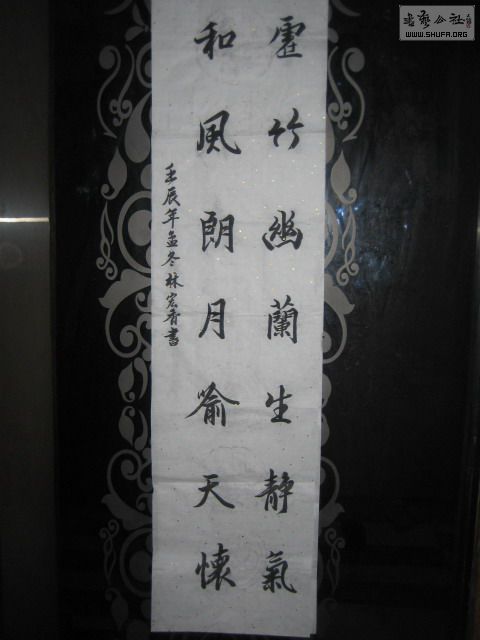 虚竹幽蘭生静氣
和風朗月喻天懷
壬辰年孟冬林宏香書
书艺公社
WWW.SHUFA.ORG